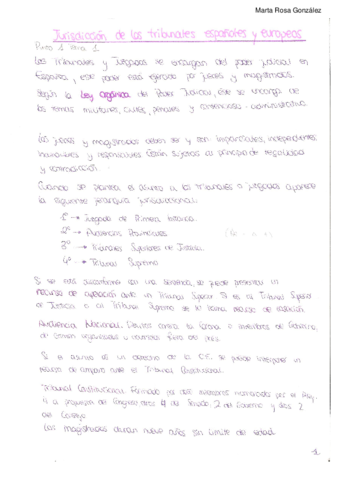 Marta Rosa González
Jurisdicción de los tribunales españoles y europeos
Los Tribunales y Juzgados se encargan del poder judicial en
España, este poder está ejercido por jueces y magistrados.
Según la Ley orgánica del Poder Judicial, éste se encarga de
los temas militares, civiles, penales y contencioso-administrativo
Los jueces y magistrados deben ser y son imparciales, independientes,
inamovibles y responsables. Están sujetos al principio de
y contradicción.
Cuando se plantea el asunto a los tribunales o juzgados
la siguiente jerarquía jurisdiccional:
1º → Juzgado de Primera Instancia.
2º → Audiencias Provinciales
3º → Tribunales Superiores de Justicia.
4º → Tribunal Supremo
Si se está disconforme con una sentencia, se puede presentar un
recurso de apelación ante un Tribunal Superior. Si es el Tribunal Superior
de Justicia o el Tribunal Supremo se le llama recurso de casación.
Audiencia Nacional. Delitos contra la Corona o miembros de Gobierno,
de crimen organizado y cometidos fuera del país.
Si el asunto es un derecho de la C.E. se puede interponer un
recurso de amparo ante el Tribunal Constitucional.
Tribunal Constitucional. Formado por doce miembros nombrados por el Rey,
4 a propuesta del Congreso, otros 4 del Senado, 2 del Gobierno y dos 2
del Consejo.
Los magistrados duran nueve años sin límite de edad.
1